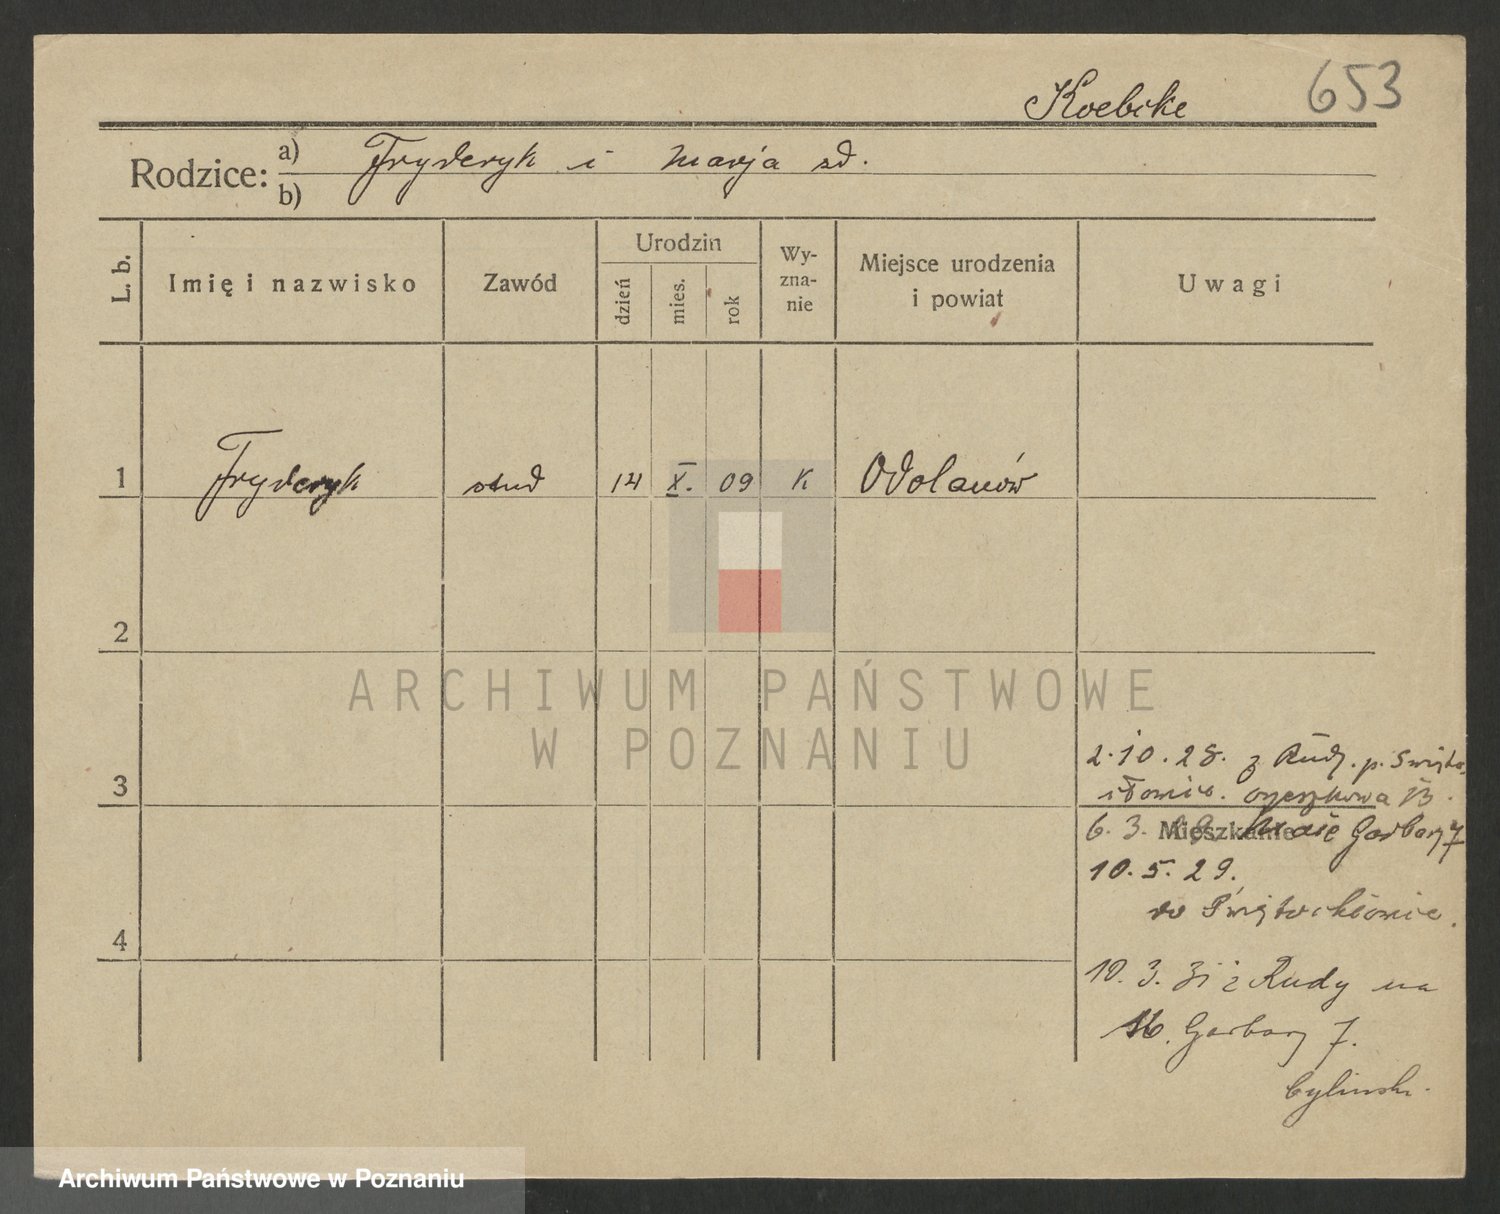 Koebcke 653
Rodzice: a) Fryderyk i Marja
b)
L. b.
Imię i nazwisko
Zawód
Urodzin
dzień
mies.
rok
Wy-
zna-
nie
Miejsce urodzenia
i powiat
Uwagi
1 Fryderyk stud 14 X. 09 K Odolanów
2
ARCHIWUM PAŃSTWOWE
W POZNANIU
3
2.10.28. z Rudy. p. Święto
Orzeszkowa 13.
Mieszkanie
6. 3. Garbary 7
10.5.29.
do Świętochłowic.
4
10. 3. 31 z Rudy na
Garbary 7.
Archiwum Państwowe w Poznaniu